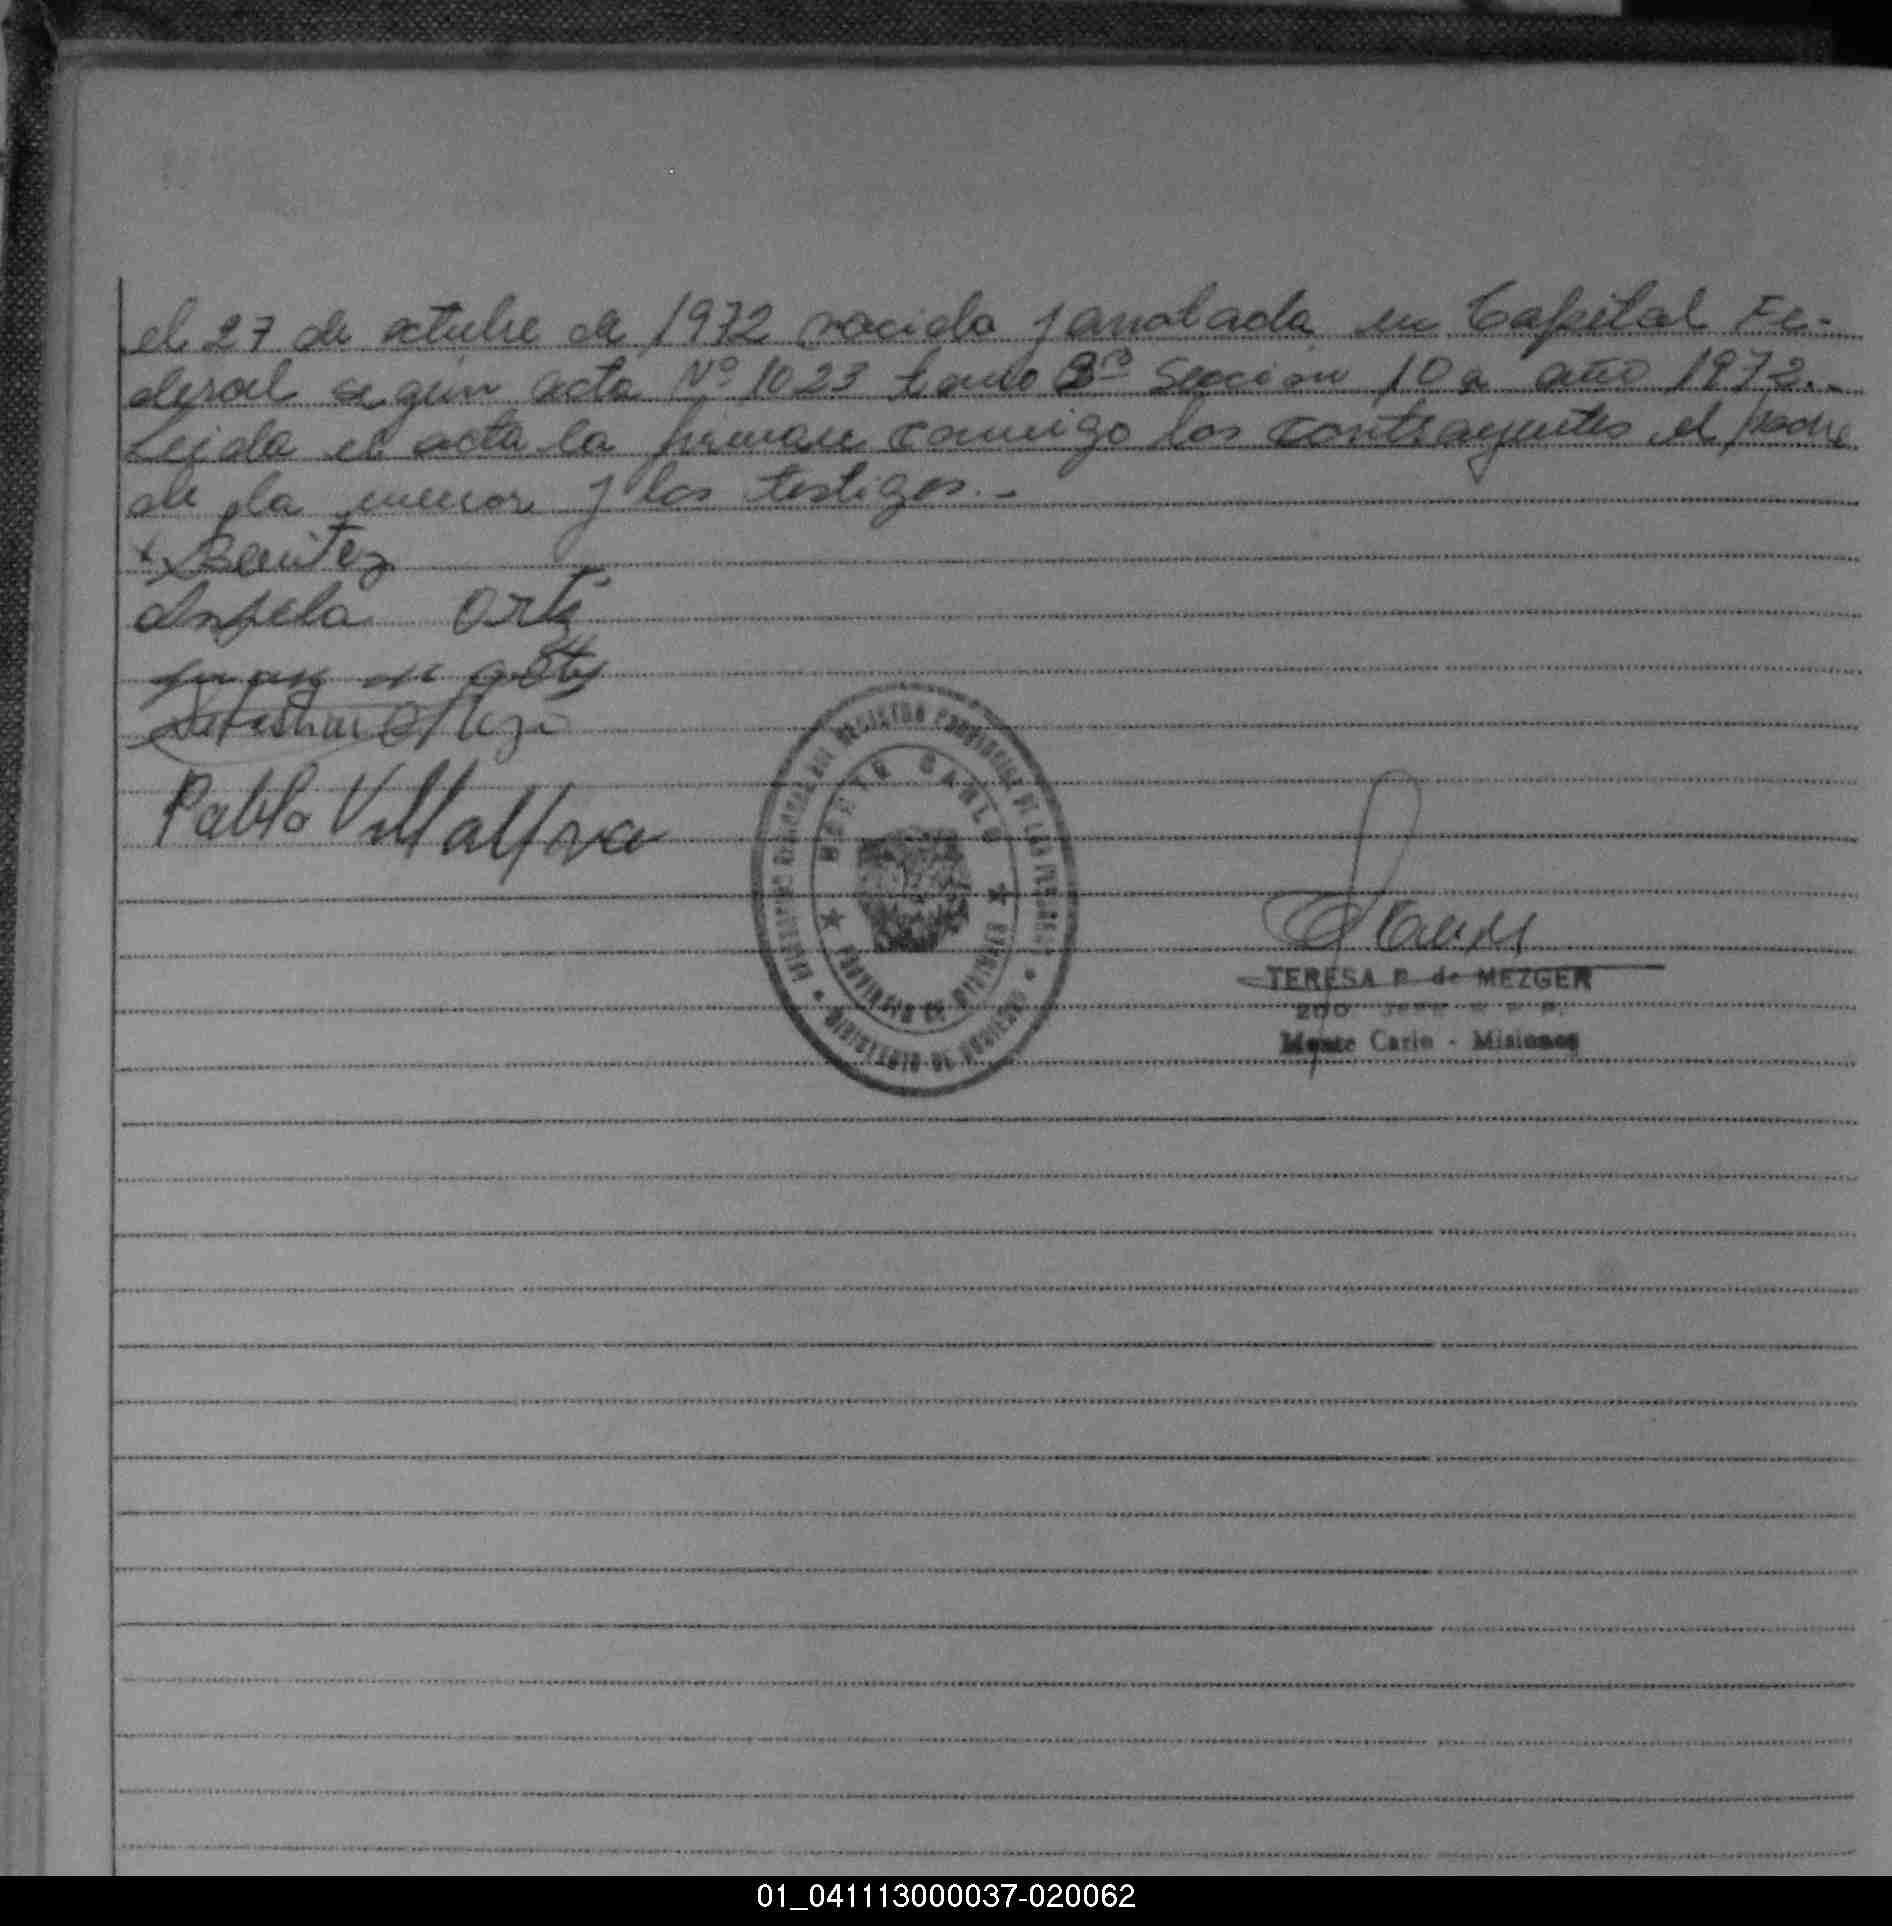 el 27 de octubre de 1972 nacida y anotada en Capital Fe-
deral según acta Nº 1023 tomo 3ro Sección 10a año 1972.-
Leida el acta la firman conmigo los contrayentes el padre
de la menor y los testigos.-
Benitez
Angela Ortiz
Pablo Villalba
REGISTRO PROVINCIAL DE LAS PERSONAS
MONTE CARLO
PROVINCIA DE MISIONES
MINISTERIO DE GOBIERNO
TERESA P. de MEZGER
Monte Carlo - Misiones
01_041113000037-020062